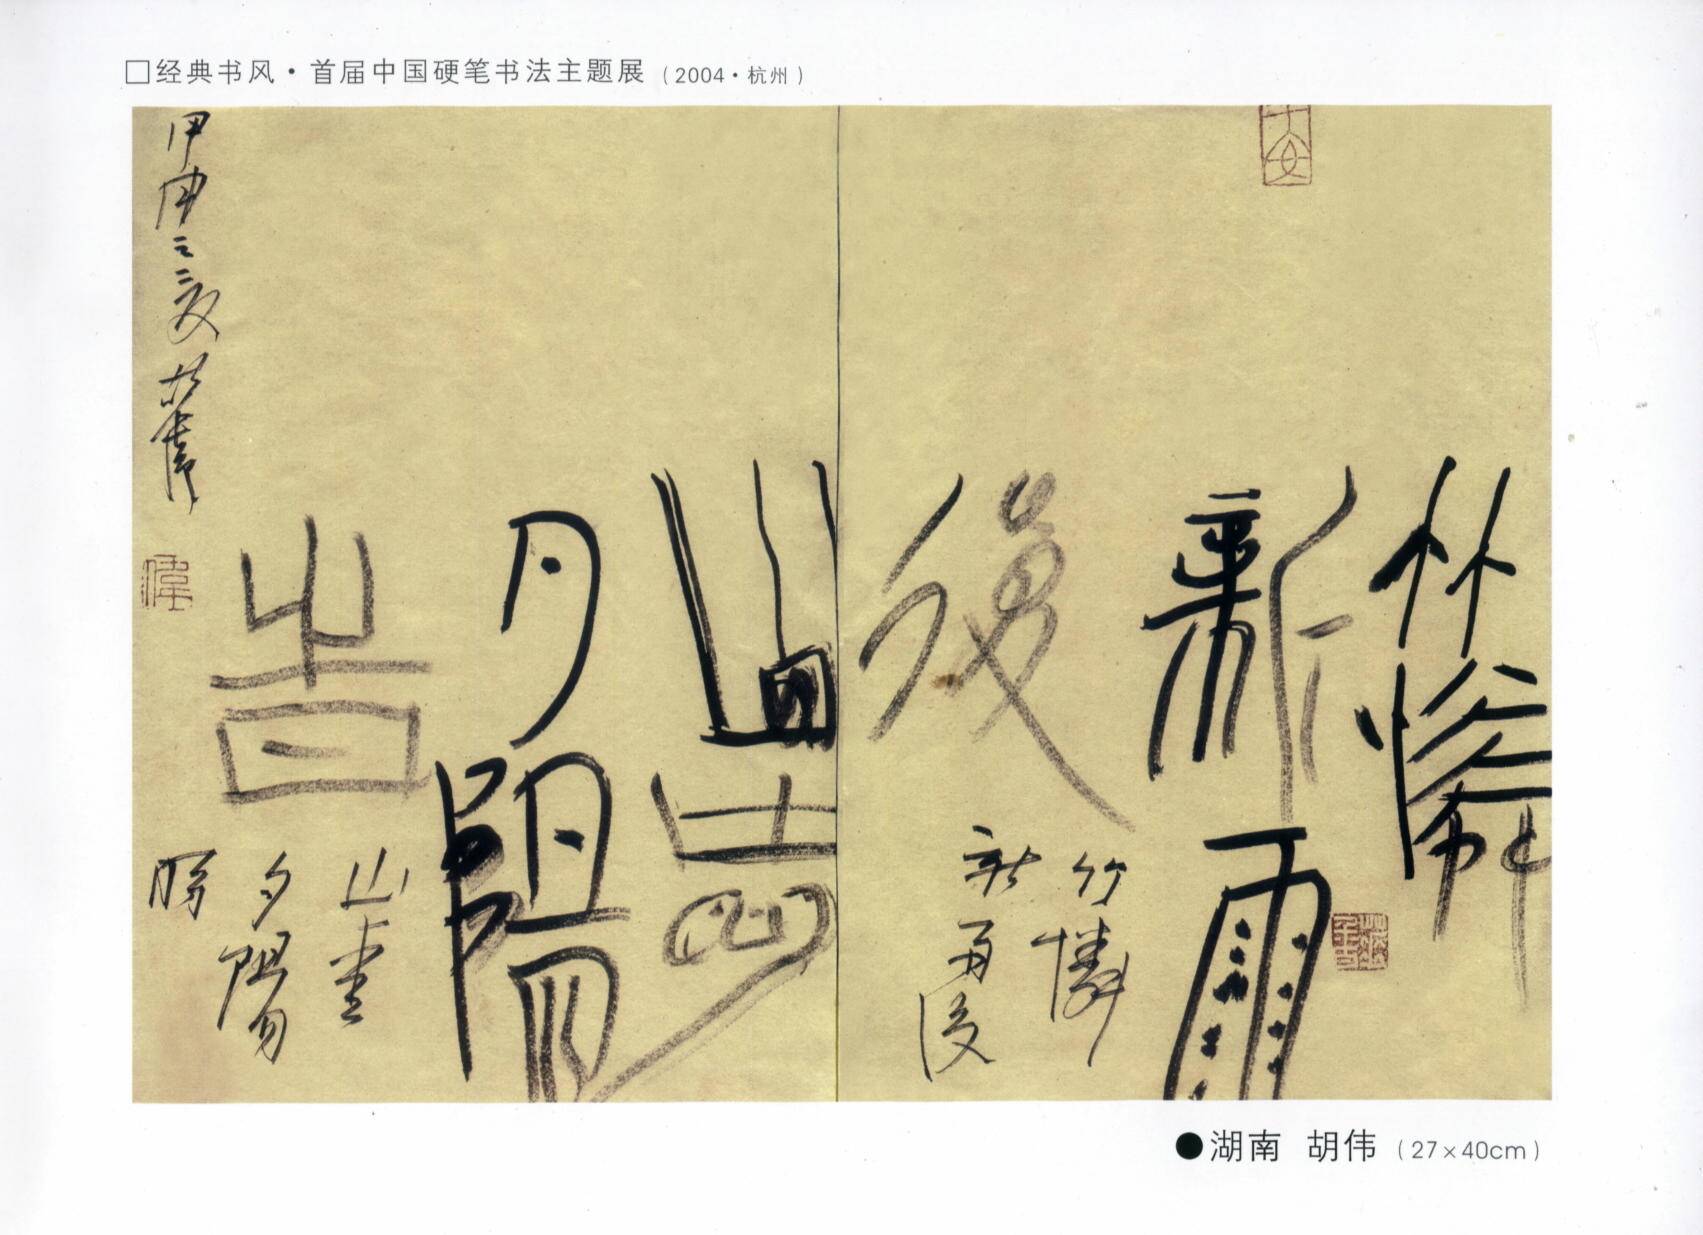 □经典书风·首届中国硬笔书法主题展（2004·杭州）
竹憐
新雨
後
竹憐
新雨後
山愛
夕陽
旹
山愛
夕陽
時
甲申之夏 胡偉
偉
●湖南 胡伟（27×40cm）